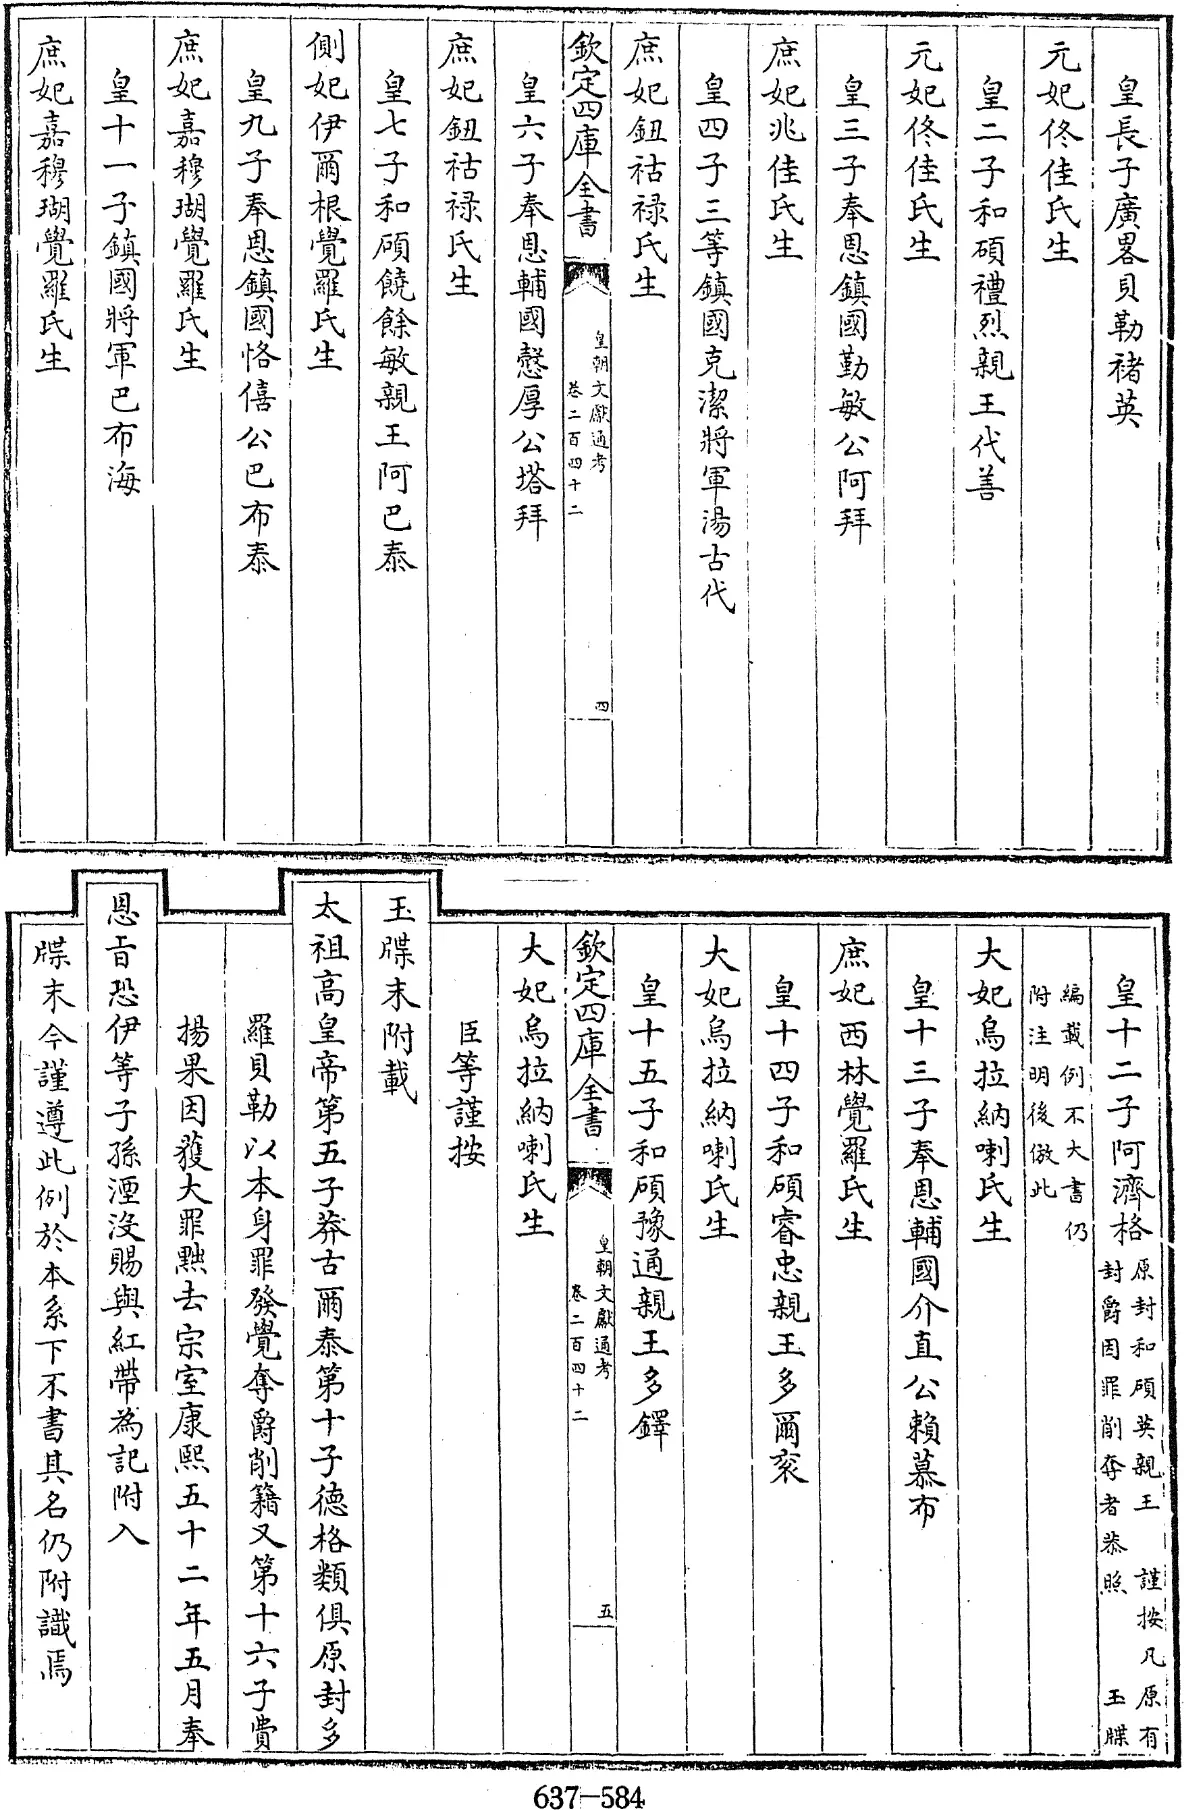 皇長子廣畧貝勒褚英
元妃佟佳氏生
皇二子和碩禮烈親王代善
元妃佟佳氏生
皇三子奉恩鎮國勤敏公阿拜
庶妃兆佳氏生
皇四子三等鎮國克潔將軍湯古代
庶妃鈕祜祿氏生
欽定四庫全書
皇朝文獻通考
卷二百四十二
四
皇六子奉恩輔國慤厚公塔拜
庶妃鈕祜祿氏生
皇七子和碩饒餘敏親王阿巴泰
側妃伊爾根覺羅氏生
皇九子奉恩鎮國恪僖公巴布泰
庶妃嘉穆瑚覺羅氏生
皇十一子鎮國將軍巴布海
庶妃嘉穆瑚覺羅氏生
皇十二子阿濟格
原封和碩英親王 謹按凡原有
封爵因罪削奪者恭照 玉牒
編載例不大書仍
附注明後倣此
大妃烏拉納喇氏生
皇十三子奉恩輔國介直公賴慕布
庶妃西林覺羅氏生
皇十四子和碩睿忠親王多爾袞
大妃烏拉納喇氏生
皇十五子和碩豫通親王多鐸
欽定四庫全書
皇朝文獻通考
卷二百四十二
五
大妃烏拉納喇氏生
臣等謹按
玉牒末附載
太祖高皇帝第五子莽古爾泰第十子德格類俱原封多
羅貝勒以本身罪發覺奪爵削籍又第十六子費
揚果因獲大罪黜去宗室康熙五十二年五月奉
恩旨恐伊等子孫湮沒賜與紅帶為記附入
牒末今謹遵此例於本系下不書其名仍附識焉
637-584